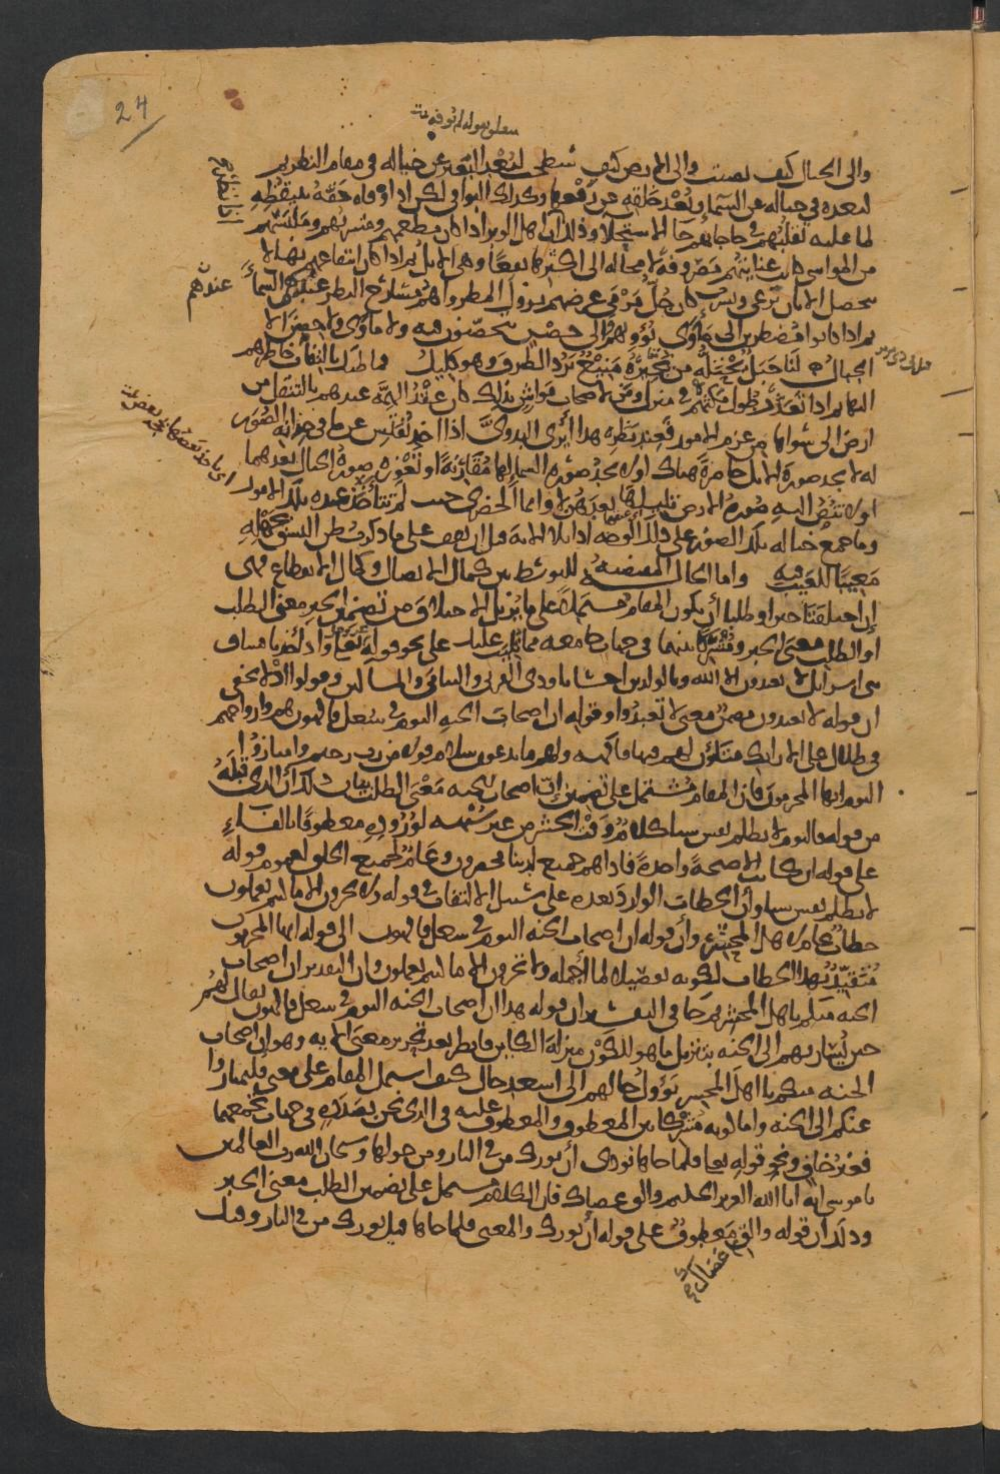 24
والى الجبال كيف نصبت والى الارض كيف سطحت لبعد البعير عن خياله في مقام النظر ثم
لبعده في خياله عن السماء وبعد خلقه عن رفعها وكذلك البواقي لكن اذا وفاه حقه بتيقظه
لما عليه تقلبهم في حاجاتهم جاء الاستحلاء وذلك ان اهل الوبر اذا كان مطعمهم ومشربهم وملبسهم
من المواشي كانت عنايتهم مصروفة لا محالة الى اكثرها نفعا وهي الابل ثم اذا كان انتفاعهم بها لا
يحصل الا بان ترعى وتشرب كان جل مرمى غرضهم نزول المطر واهم مسارح النظر عندهم السماء
عندهم
ثم اذا كانوا مضطرين الى مأوى يؤويهم والى حصن يتحصنون فيه ولا مأوى ولا حصن الا
الجبال لنا جبل يحتله من نجيره منيع يرد الطرف وهو كليل فما ظنك بالتفات خاطرهم
اليها ثم اذا تعذر طول مكثهم في منزل ومن لاصحاب مواش بذلك كان عقد الهمة عندهم بالتنقل من
ارض الى سواها من عزم الامور فعند نظره هذا أيرى البدوي اذا اخذ يفتش عما في خزانة الصور
له لا يجد صورة الابل حاضرة هناك او لا يجد صورة السماء لها مقارنة او تعوزه صورة الجبال بعدهما
او لا تنص اليه صورة الارض تليها بعدهن لا واما الحضري حيث لم تتآخذ عنده تلك الامور
وما جمع خياله تلك الصور على ذلك الوجه اذا تلا الاية قبل ان يقف على ما ذكرت ظن النسق بجهله
معيبا للعيب فيه واما الحالة المقتضية للتوسط بين كمال الاتصال وكمال الانقطاع فهي
إن اختلفتا خبرا وطلبا أن يكون المقام مشتملا على ما يزيل الاختلاف من تضمين الخبر معنى الطلب
او الطلب معنى الخبر ومشركا بينهما في جهات جامعة مما تليت عليك على نحو قوله تعالى واذ اخذنا ميثاق
بني اسرائيل لا تعبدون الا الله وبالوالدين احسانا وذي القربى واليتامى والمساكين وقولوا اذ لا يخفى
ان قوله لا تعبدون مضمن معنى لا تعبدوا وقوله ان اصحاب الجنة اليوم في شغل فاكهون هم وازواجهم
في ظلال على الارائك متكئون لهم فيها فاكهة ولهم ما يدعون سلام قولا من رب رحيم وامتازوا
اليوم ايها المجرمون فان المقام مشتمل على تضمين إن اصحاب الجنة معنى الطلب بيان ذلك أن الذي قبله
من قوله فاليوم لا تظلم نفس شيئا كلام وقت الحشر من غير شبهة لوروده معطوفا بالفاء
على قوله ان كانت الا صيحة واحدة فاذا هم جميع لدينا محضرون وعام لجميع الخلق لعموم قوله
لا تظلم نفس شيئا وأن الخطاب الوارد بعده على سبيل الالتفات في قوله ولا تجزون الا ما كنتم تعملون
خطاب عام لاهل المحشر وأن قوله ان اصحاب الجنة اليوم في شغل فاكهون الى قوله ايها المجرمون
متقيد بهذا الخطاب لكونه تفصيلا لما اجمله ولا تجزون الا ما كنتم تعملون وان التقدير ان اصحاب
الجنة منكم يا اهل المحشر ثم جاء في التفسير ان قوله هذا ان اصحاب الجنة اليوم في شغل فاكهون يقال لهم
حين يسار بهم الى الجنة بتنزيل ما هو للتكوين منزلة الكائن فانظر بعد تحرير معنى الاية وهو ان اصحاب
الجنة منكم يا اهل المحشر يؤول حالهم الى اسعد حال كيف اشتمل المقام على معنى فليمتازوا
عنكم الى الجنة واما كونه مشركا بين المعطوف والمعطوف عليه في الذي نحن بصدده في جهات تجمعهما
فغير خاف ونحو قوله تعالى فلما جاءها نودي أن بورك من في النار ومن حولها وسبحان الله رب العالمين
يا موسى انه انا الله العزيز الحكيم والق عصاك فان الكلام مشتمل على تضمين الطلب معنى الخبر
وذلك أن قوله والق معطوف على قوله أن بورك والمعنى فلما جاءها قيل بورك من في النار وقيل
الق عصاك